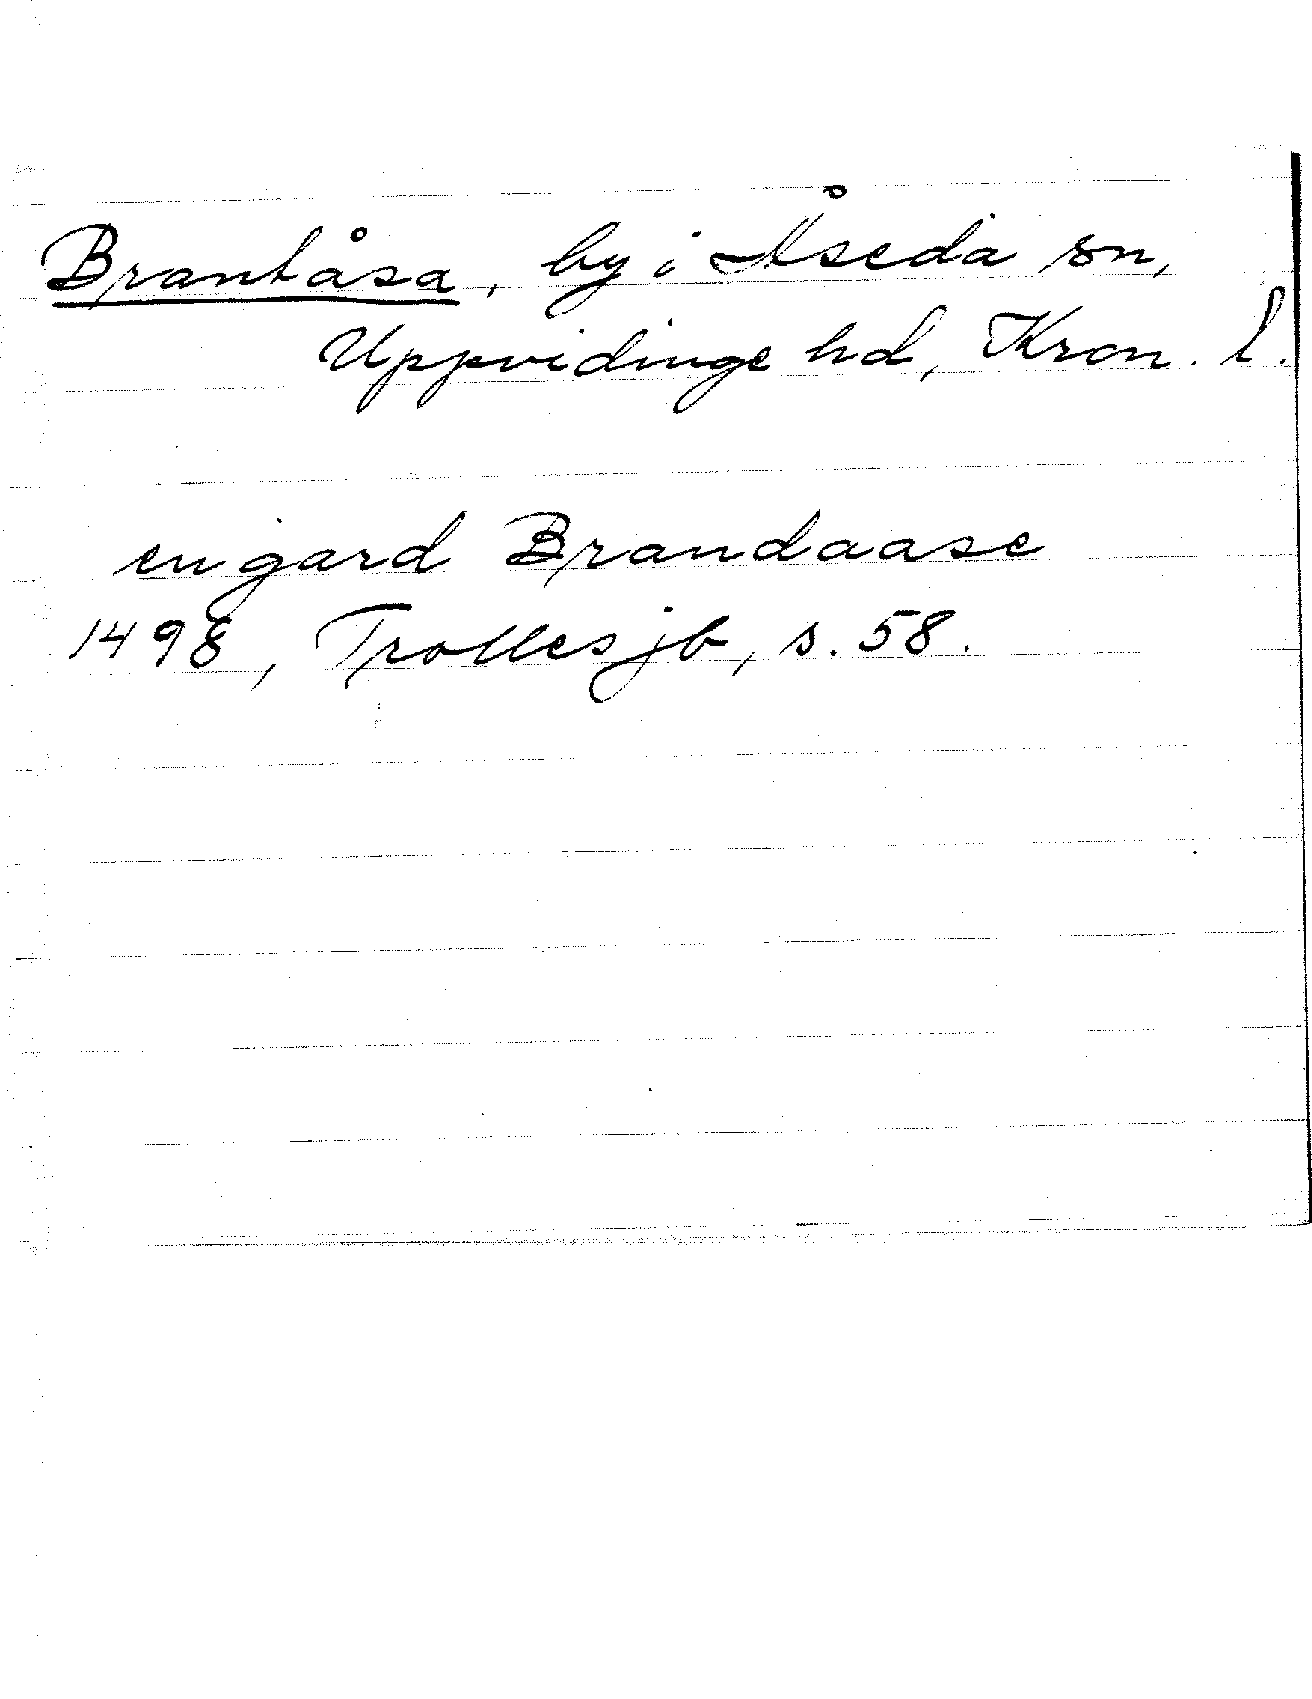 Brantåsa, by i Åseda sn,
Uppvidinge hd, Kron. l.
en gard Brandaase
1498, Trolles jb, s. 58.